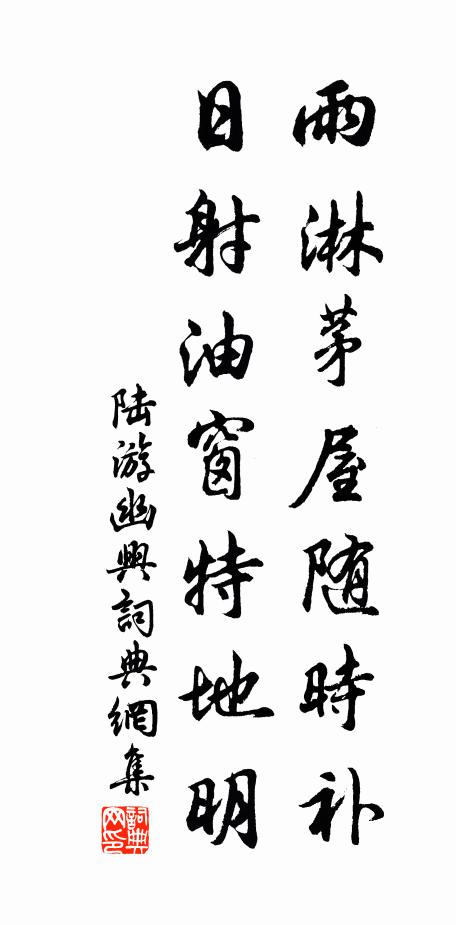 雨淋茅屋随時补
日射油窗特地明
陆游幽興詞典網集
詞典网印